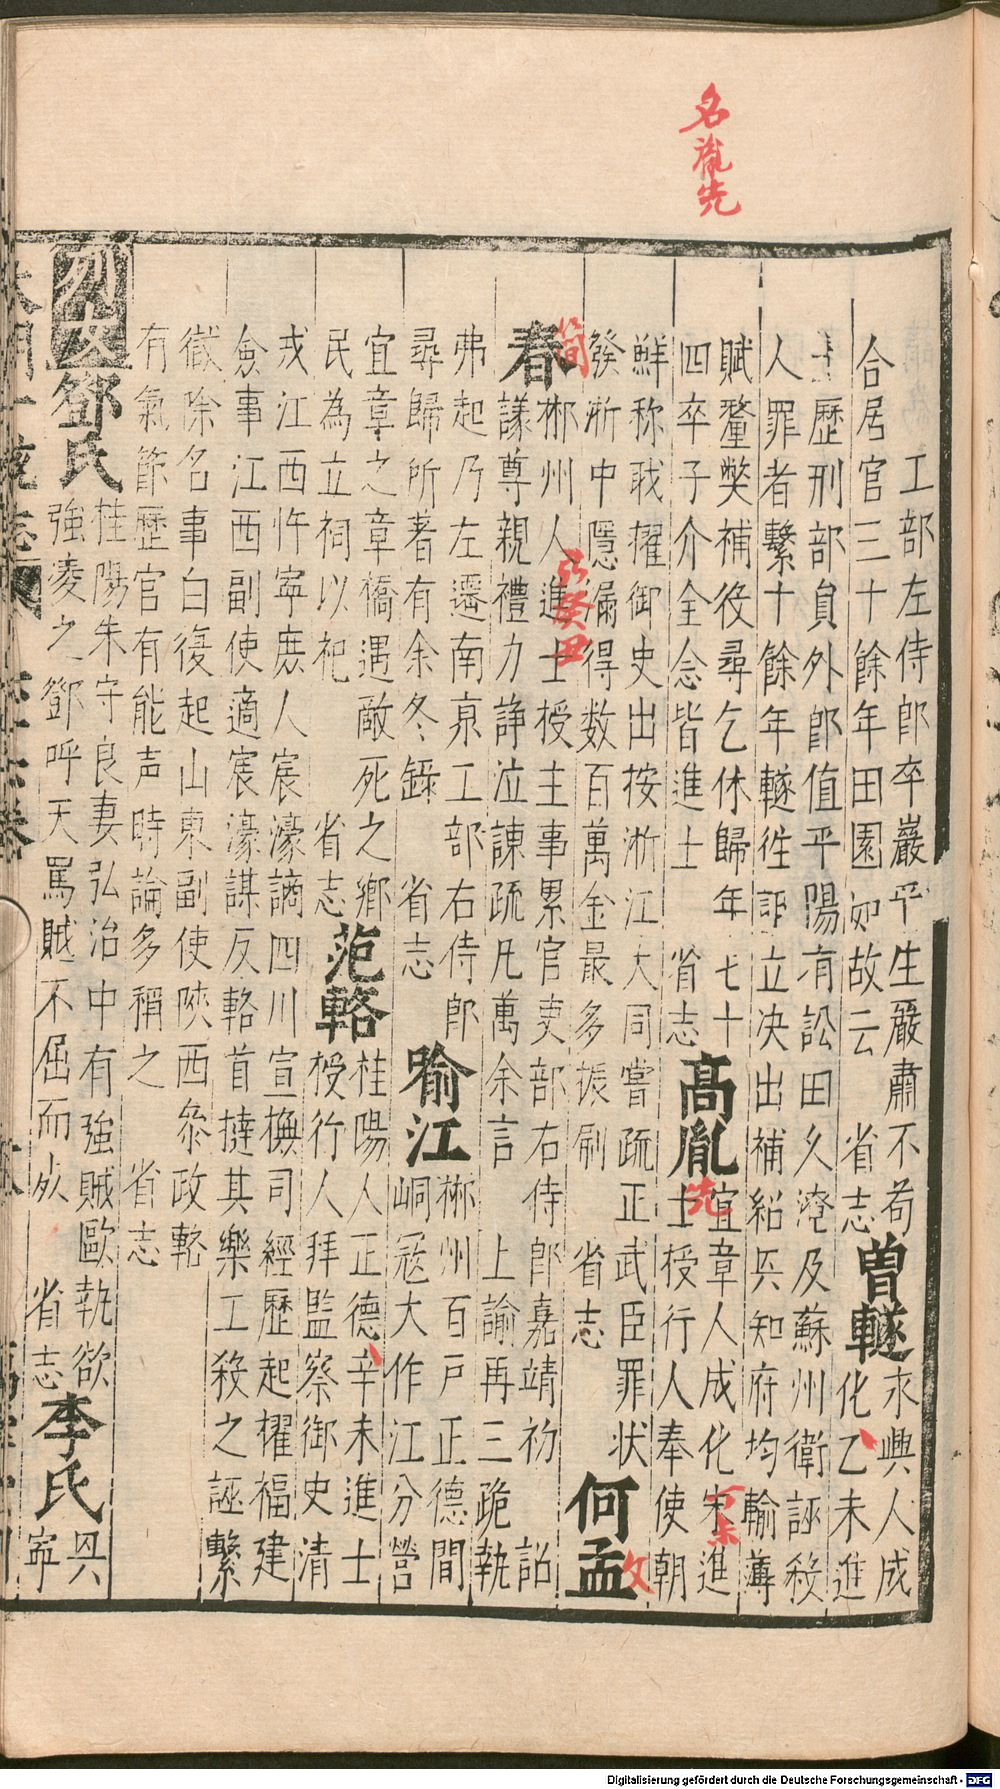 名胤先
工部左侍郎卒巖平生嚴肅不苟
合居官三十餘年田園如故云 省志
曾
永興人成
化乙未進
士歷刑部員外郎值平陽有訟田久淹及蘇州衛誣殺
人罪者繫十餘年往訊立决出補紹兵知府均輸薄
賦釐獘補役尋乞休歸年七十
四卒子介全念皆進士 省志
高胤
先
宜章人成化宋進
士授行人奉使朝
鮮称戢擢御史出按浙江大同嘗疏正武臣罪状
發浙中隱漏得数百萬金最多振刷 省志
何孟
文
簡
春
弘癸丑
郴州人進士授主事累官吏部右侍郎嘉靖初 詔
議尊親禮力諍泣諌疏凡萬余言 上諭再三跪執
弗起乃左遷南京工部右侍郎
尋歸所著有余冬錄 省志
喻江
郴州百戶正德間
峒冦大作江分營
宜章之章橋遇敵死之鄉
民為立祠以祀 省志
范輅
桂陽人正德辛未進士
授行人拜監察御史清
戎江西忤寧庶人宸濠謫四川宣撫司經歷起擢福建
僉事江西副使適宸濠謀反輅首撻其樂工殺之誣繫
獄除名事白復起山東副使陝西叅政輅
有氣節歷官有能声時論多稱之 省志
列女
鄧氏
桂陽朱守良妻弘治中有強賊歐執欲
強凌之鄧呼天罵賊不屈而死 省志
李氏
興
寧
Digitalisierung gefördert durch die Deutsche Forschungsgemeinschaft - DFG